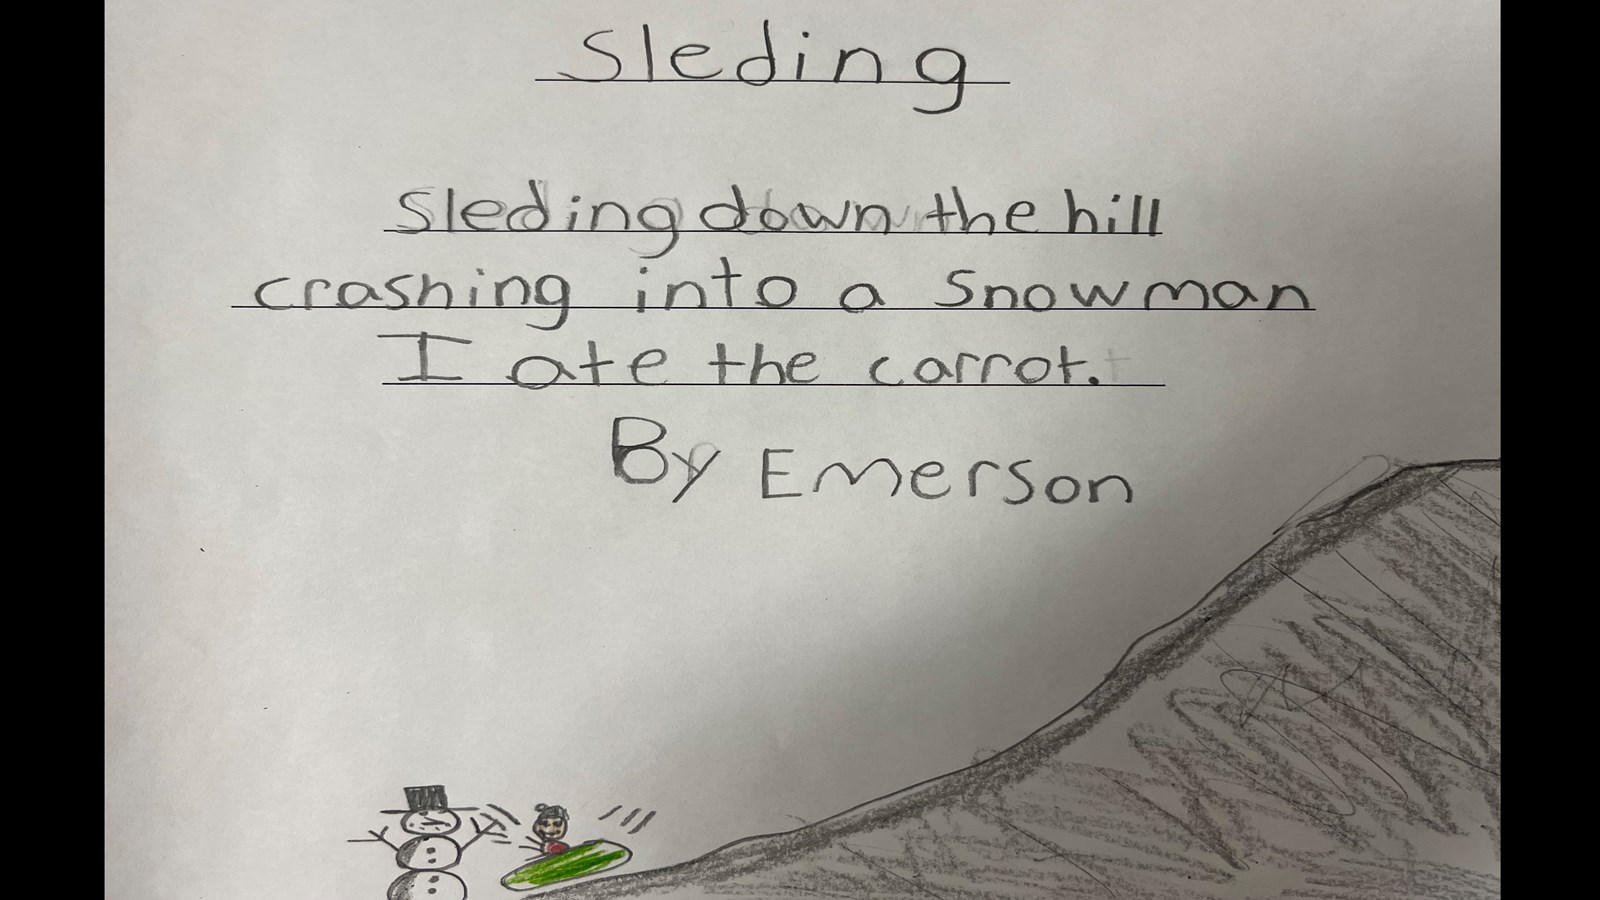 Sleding
Sleding down the hill
crashing into a snowman
I ate the carrot.
By Emerson